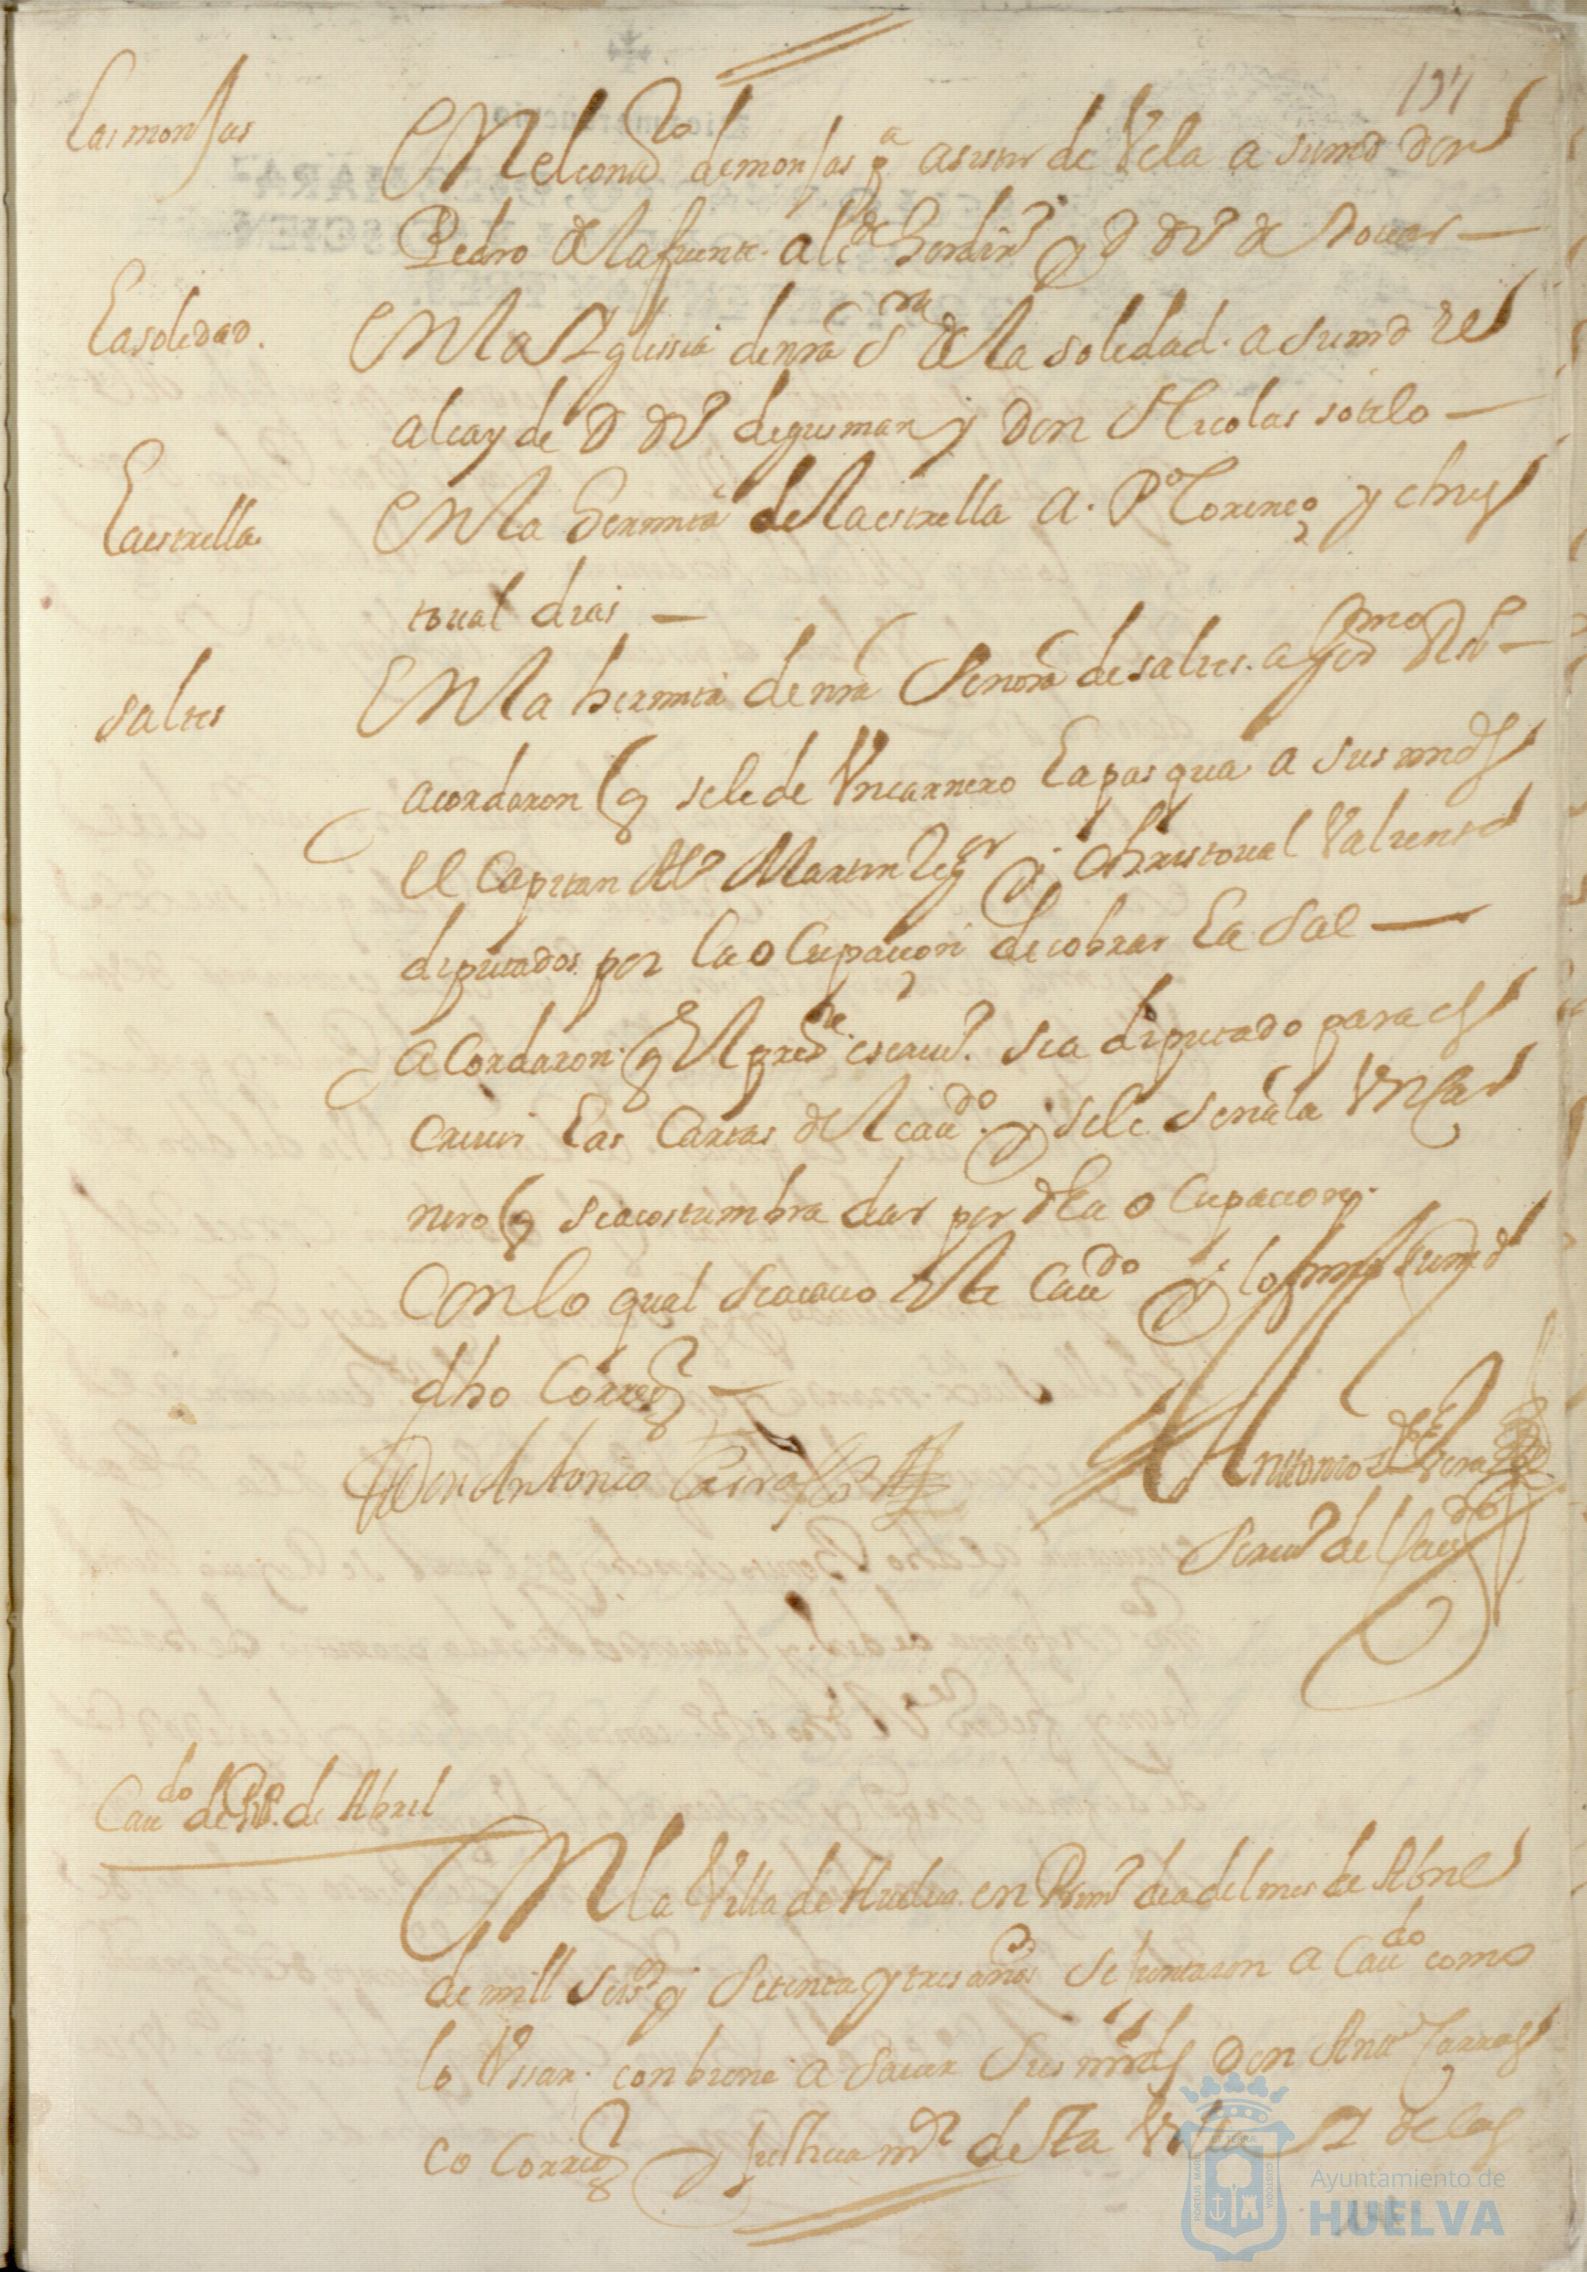 197
Las monjas
En el conbto de monjas pa asistir de Vela a su md don
Pedro de la fuente alcde hordinro y D dio de tovar —
La soledad.
En la Yglessia de nra sra de la soledad. a su md el
alcayde D dio de gusman y Don Nicolas sotelo —
La estrella
En la hermita de la estrella A. Po Lorenço y chris
toual dias —
saltes
En la hermita de nra Señora de saltes. a
acordaron q se le de Un carnero La pasqua a sus mds
el Capitan Alo Martin y Christoual Valiente
diputados por la ocupaçion de cobrar La sal —
acordaron q el preste escriuo. sea diputado para es
creuir Las Cartas del caudo. y se le señala Un car
nero q se acostumbra dar por dha ocupaçion.
Con lo qual se acauo este Caudo y lo firmo su md
dho Correxr —
Don Antonio Carrasco
Anttonio de
Scriuo del Caudo
Caudo de Pro. de Abril
En la Villa de Huelua en Primo dia del mes de Abril
de mill seisos y Setenta y tres años se juntaron a Caudo como
lo Vssan. conbiene a sauer sus mrds Don Anto Carras
co Correxr y justicia mor desta Villa
Ayuntamiento de
HUELVA